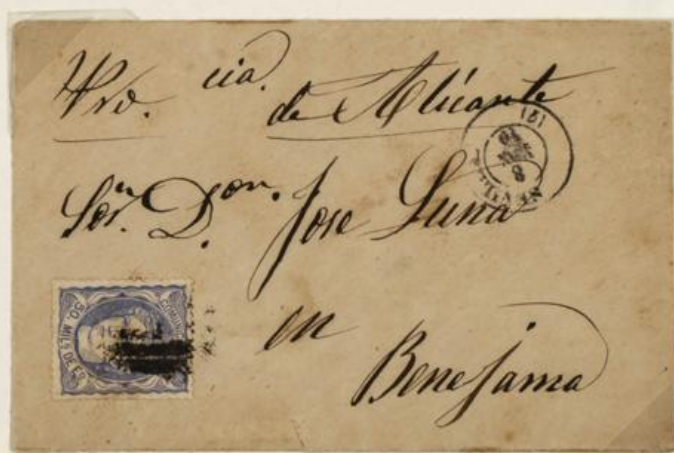 Pro.cia de Alicante
Sor.n D.on Jose Luna
en
Benejama
50 MILS DE E